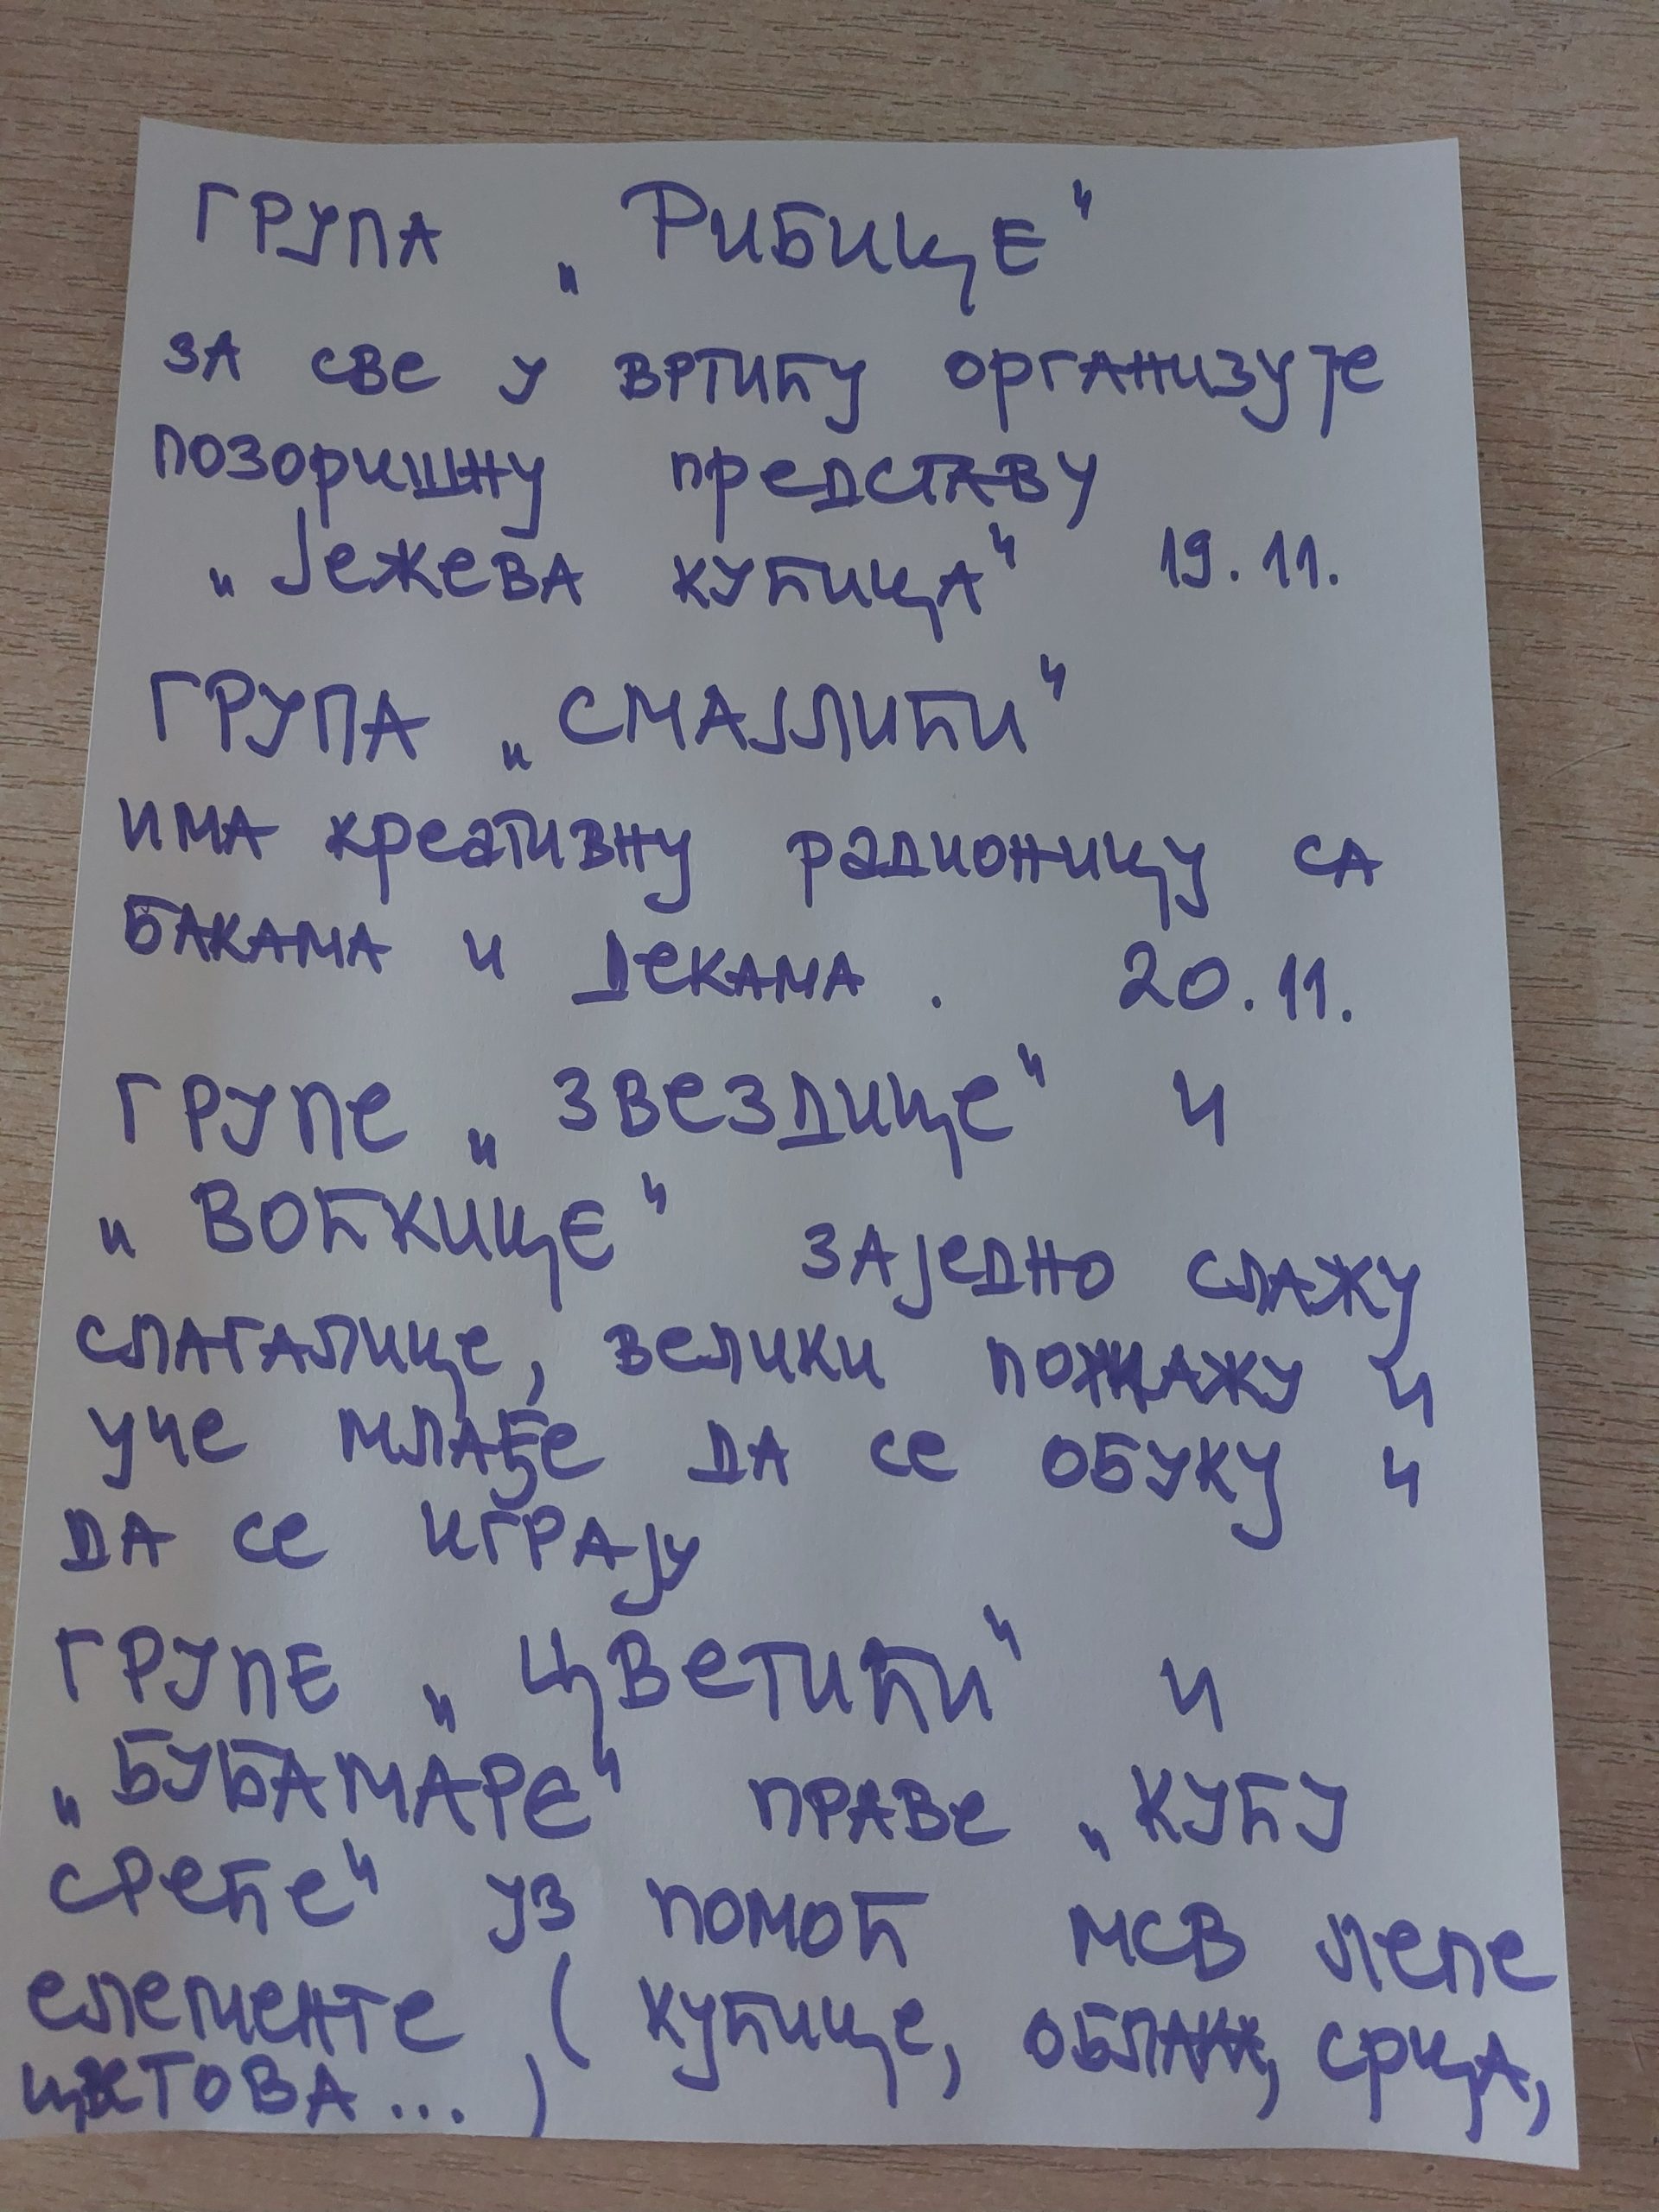 ГРУПА „РИБИЦЕ“
ЗА СВЕ У ВРТИЋУ ОРГАНИЗУЈЕ
ПОЗОРИШНУ ПРЕДСТАВУ
„ЈЕЖЕВА КУЋИЦА“ 19.11.
ГРУПА „СМАЈЛИЋИ“
ИМА КРЕАТИВНУ РАДИОНИЦУ СА
БАКАМА И ДЕКАМА. 20.11.
ГРУПЕ „ЗВЕЗДИЦЕ“ И
„ВОЋКИЦЕ“ ЗАЈЕДНО СЛАЖУ
СЛАГАЛИЦЕ, ВЕЛИКИ И
УЧЕ МЛАЂЕ ДА СЕ ОБУКУ И
ДА СЕ ИГРАЈУ
ГРУПЕ „ЦВЕТИЋИ“ И
„БУБАМАРЕ“ ПРАВЕ „КУЋУ
СРЕЋЕ“ УЗ ПОМОЋ МСВ ЛЕПЕ
ЕЛЕМЕНТЕ (КУЋИЦЕ, СРЦА,
ЦВЕТОВА...)